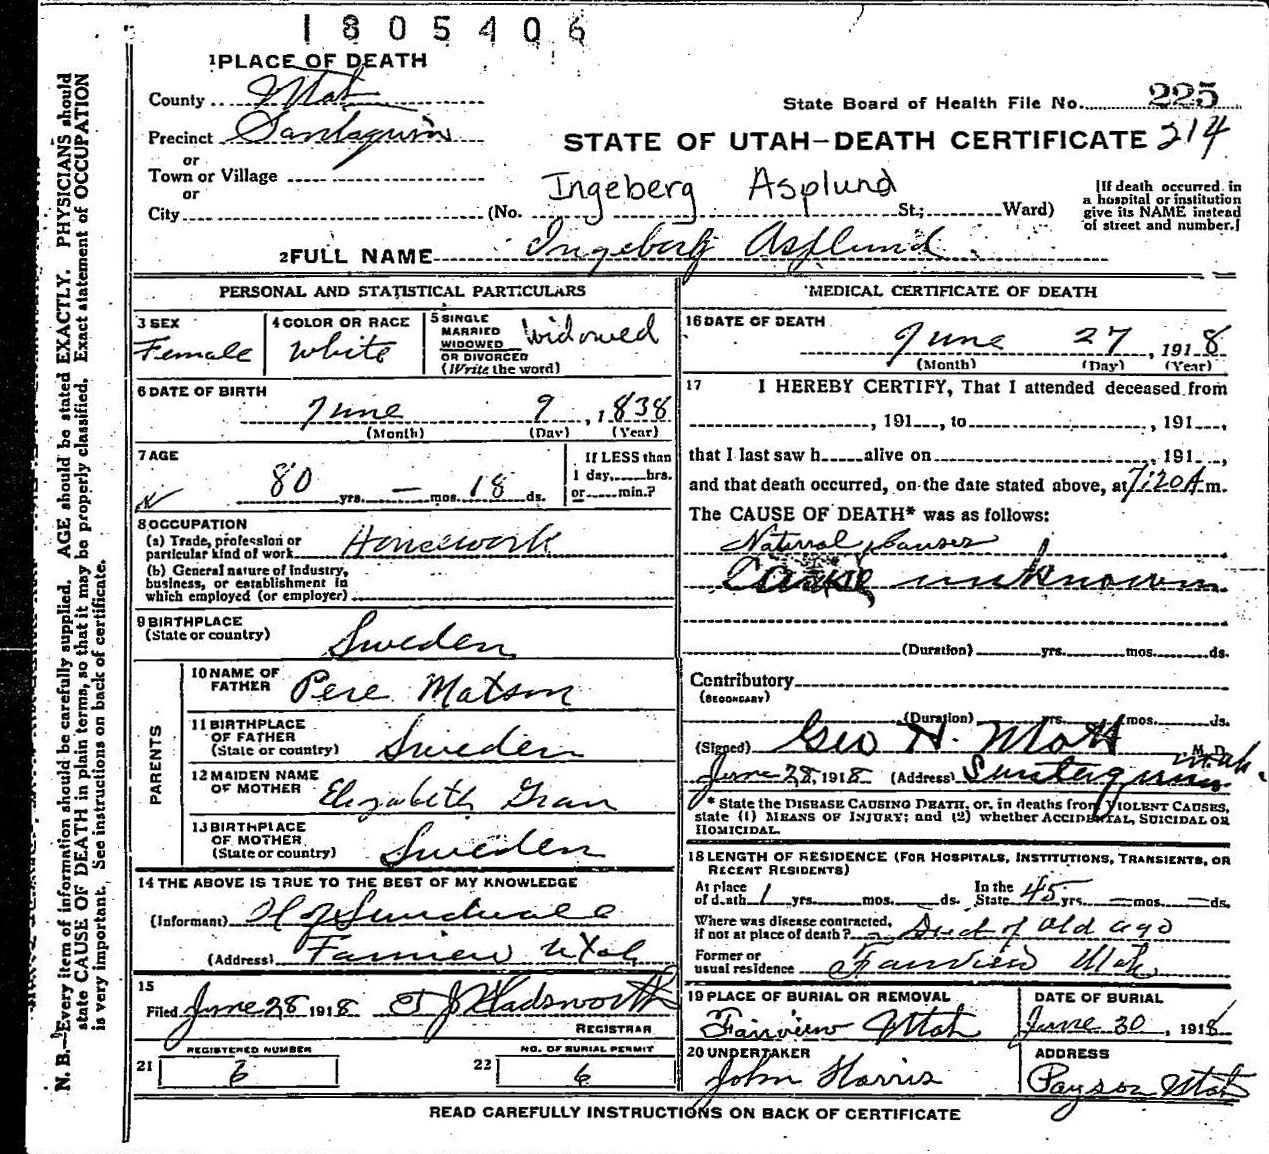 1805406
1 PLACE OF DEATH
County Utah
State Board of Health File No. 225
Precinct Santaquin
STATE OF UTAH—DEATH CERTIFICATE 214
or
Town or Village
or
City (No. Ingeberg Asplund St.; Ward)
[If death occurred in a hospital or institution give its NAME instead of street and number.]
2 FULL NAME Ingeborg Asplund
PERSONAL AND STATISTICAL PARTICULARS
3 SEX
Female
4 COLOR OR RACE
White
5 SINGLE
MARRIED
WIDOWED
OR DIVORCED
(Write the word)
Widowed
6 DATE OF BIRTH
June 9, 1838
(Month) (Day) (Year)
7 AGE
80 yrs. — mos. 18 ds.
If LESS than
1 day, hrs.
or min.?
8 OCCUPATION
(a) Trade, profession or
particular kind of work Housework
(b) General nature of industry,
business, or establishment in
which employed (or employer)
9 BIRTHPLACE
(State or country) Sweden
PARENTS
10 NAME OF
FATHER Pere Matson
11 BIRTHPLACE
OF FATHER
(State or country) Sweden
12 MAIDEN NAME
OF MOTHER Elizabeth Gran
13 BIRTHPLACE
OF MOTHER
(State or country) Sweden
14 THE ABOVE IS TRUE TO THE BEST OF MY KNOWLEDGE
(Informant) Sundwall
(Address) Fairview Utah
15
Filed June 28 1918 T J Wadsworth
REGISTRAR
REGISTERED NUMBER
21 6
NO. OF BURIAL PERMIT
22 6
MEDICAL CERTIFICATE OF DEATH
16 DATE OF DEATH
June 27, 1918
(Month) (Day) (Year)
17 I HEREBY CERTIFY, That I attended deceased from
, 191 , to , 191 ,
that I last saw h alive on , 191 ,
and that death occurred, on the date stated above, at 7:20 A m.
The CAUSE OF DEATH* was as follows:
Natural Causes
Cause unknown
(Duration) yrs. mos. ds.
Contributory
(SECONDARY)
(Duration) yrs. mos. ds.
(Signed) Geo H. Mott, M. D.
June 28, 1918 (Address) Santaquin Utah.
* State the DISEASE CAUSING DEATH, or, in deaths from VIOLENT CAUSES,
state (1) MEANS OF INJURY; and (2) whether ACCIDENTAL, SUICIDAL OR
HOMICIDAL.
18 LENGTH OF RESIDENCE (FOR HOSPITALS, INSTITUTIONS, TRANSIENTS, OR
RECENT RESIDENTS)
At place
of death 1 yrs. mos. ds. In the
State 45 yrs. — mos. — ds.
Where was disease contracted,
if not at place of death? Died of old age
Former or
usual residence Fairview Utah
19 PLACE OF BURIAL OR REMOVAL
Fairview Utah
DATE OF BURIAL
June 30, 1918
20 UNDERTAKER
John Harris
ADDRESS
Payson Utah
READ CAREFULLY INSTRUCTIONS ON BACK OF CERTIFICATE
N. B.—Every item of information should be carefully supplied. AGE should be stated EXACTLY. PHYSICIANS should
state CAUSE OF DEATH in plain terms, so that it may be properly classified. Exact statement of OCCUPATION
is very important. See instructions on back of certificate.